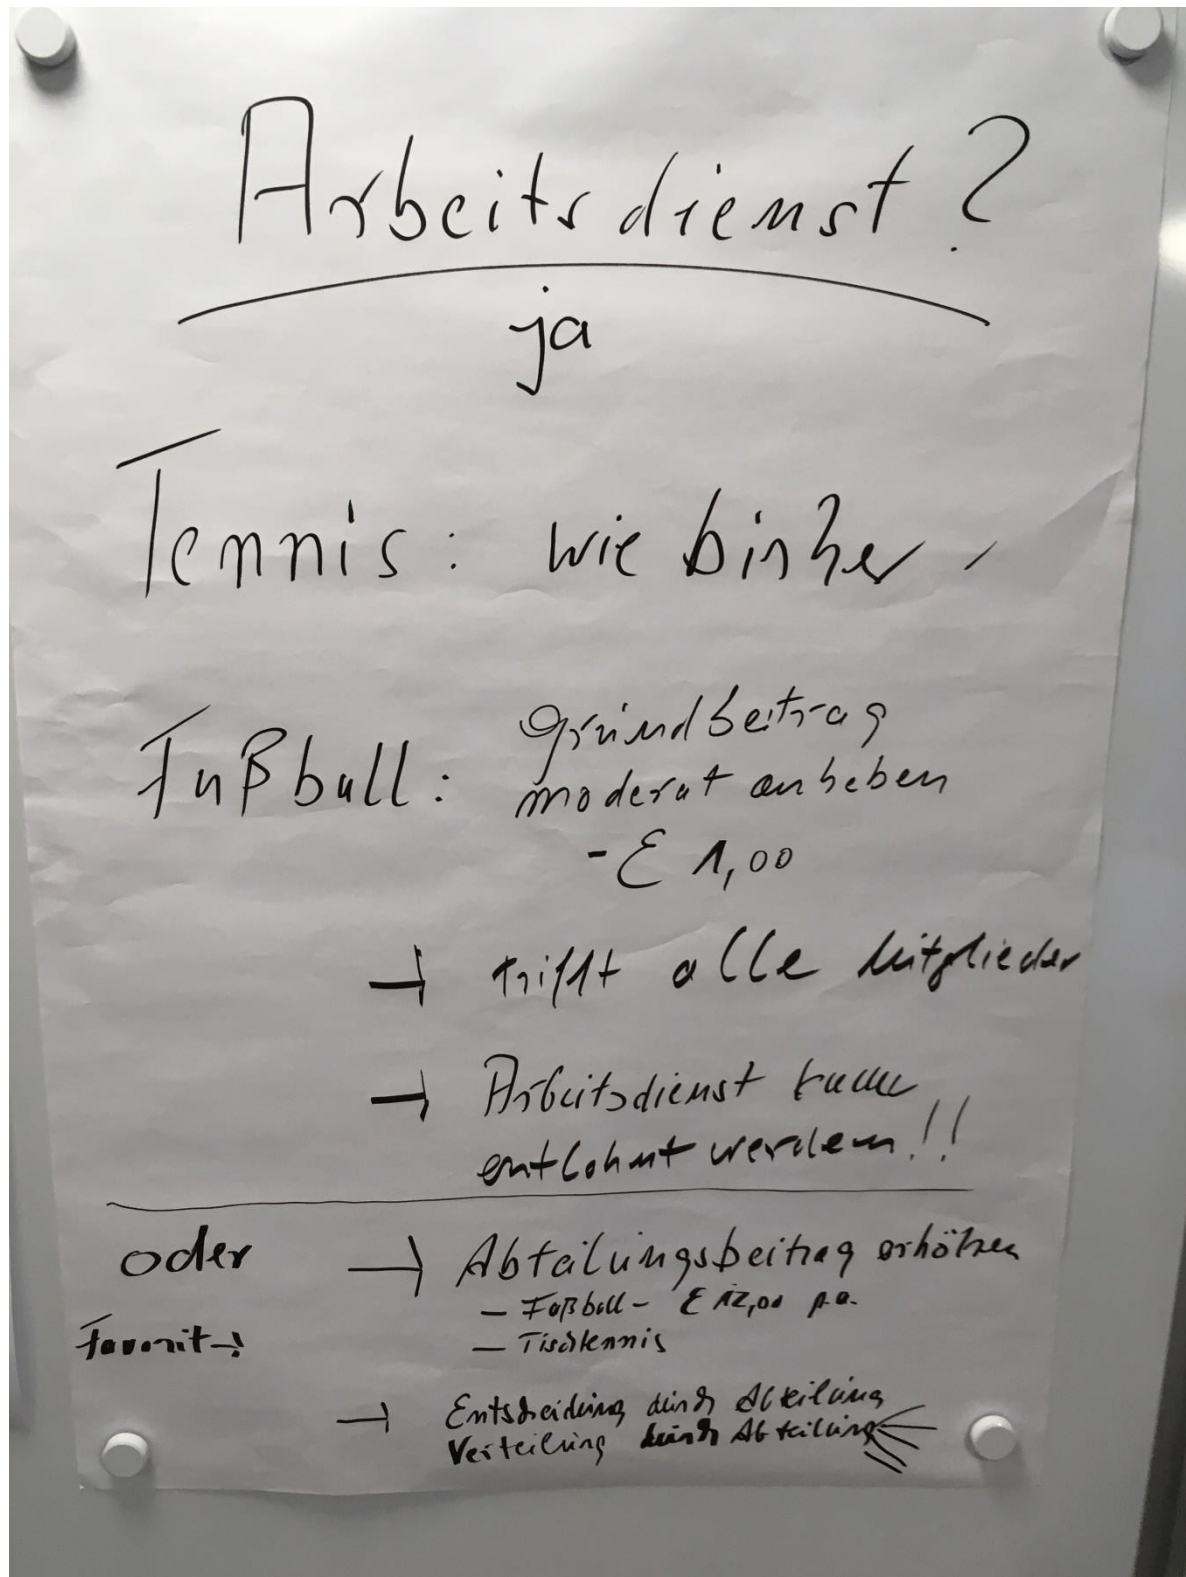 Arbeitsdienst?
ja
Tennis: wie bisher
Fußball: Grundbeitrag
moderat anheben
- € 1,00
→ trifft alle Mitglieder
→ Arbeitsdienst kann
entlohnt werden!!
oder → Abteilungsbeitrag erhöhen
- Fußball - € 12,00 p.a.
Favorit →! - Tischtennis
→ Entscheidung durch Abteilung
Verteilung durch Abteilung